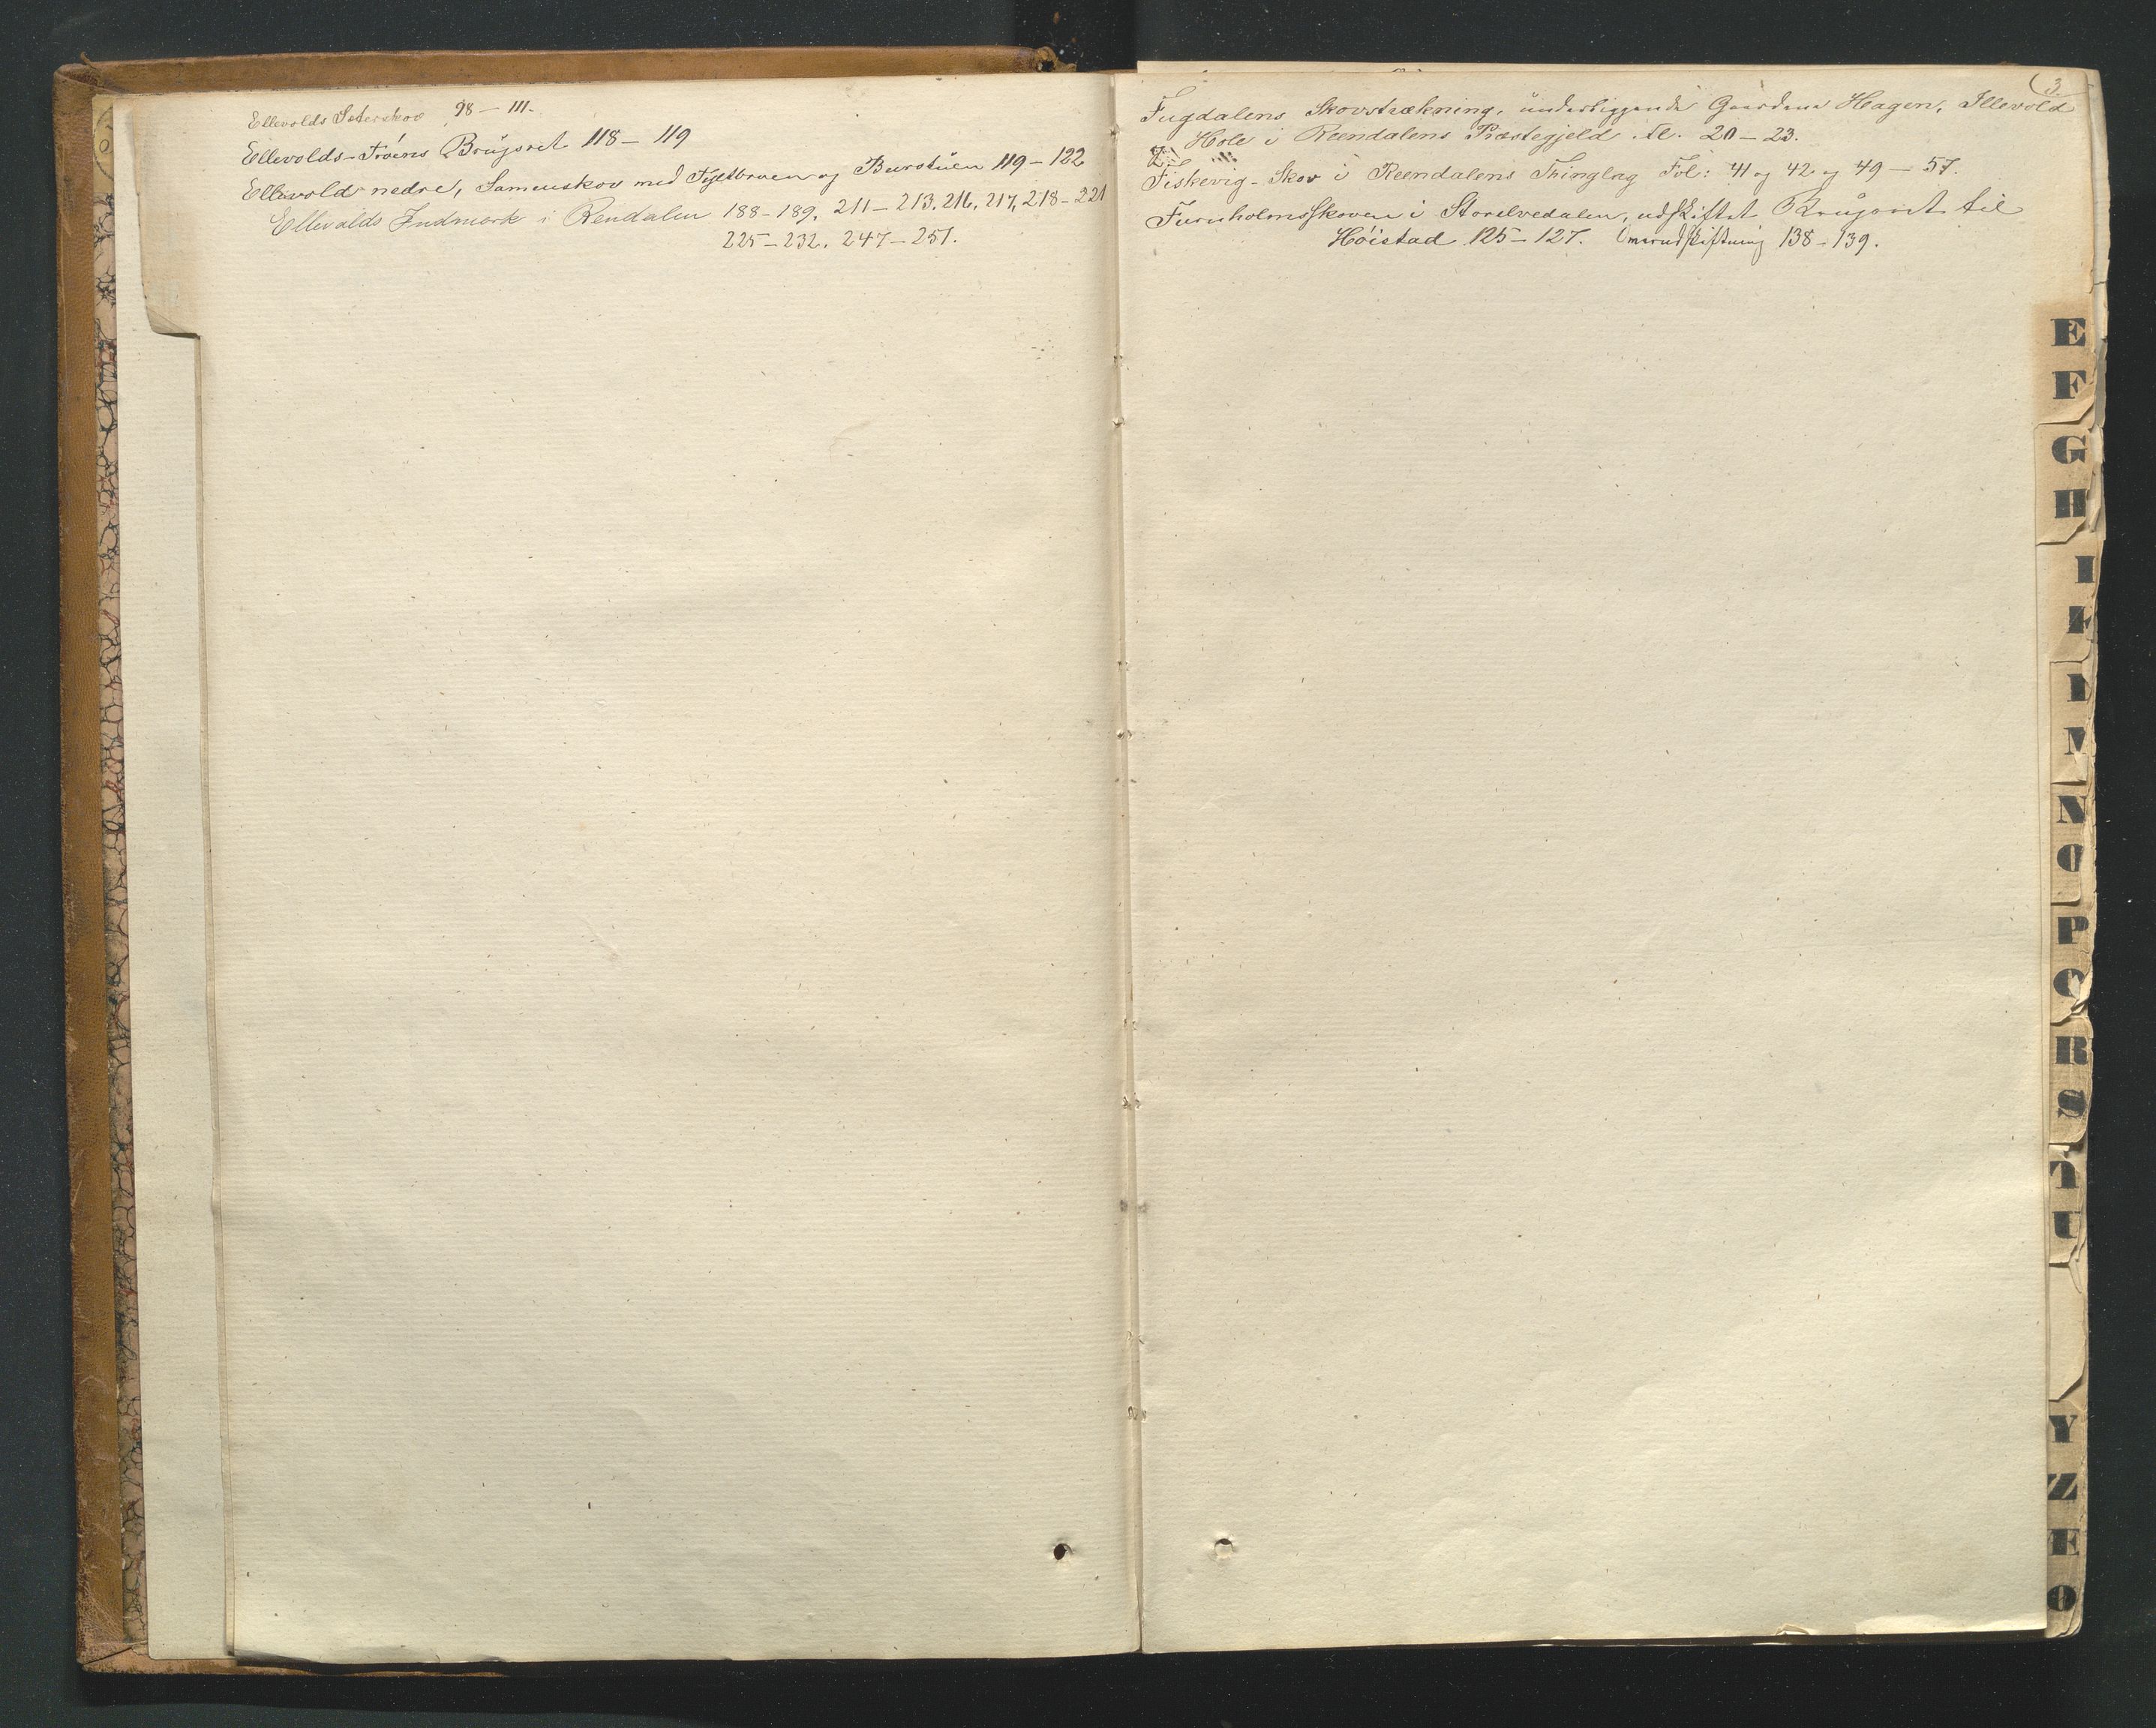 Ellevolds Seterskov 98 — 111.
Ellevolds-Troëns Brugsret 118 — 119
Ellevold nedre, Sameskov med Fyltbraen og Burstuen 119 — 122
Ellevolds Indmark i Rendalen 188 - 189, 211 — 213. 216, 217, 218 - 221
225 — 232. 247 — 251.
3.
Fugdalens Skovstrækning, underliggende Gaardene Hagen, Illevold
Hole i Reendalens Præstegjeld. Fl. 20 — 23.
Fiskevig - Skov i Reendalens Thinglag Fol: 41 og 42 og 49 — 57.
Furuholmsskoven i Storelvedalen, udskiftet Brugsret til
Høistad 125 — 127. Omudskiftning 138 - 139.
E
F
G
H
I
K
L
M
N
O
P
Q
R
S
T
U
Y
Z
Æ
Ø